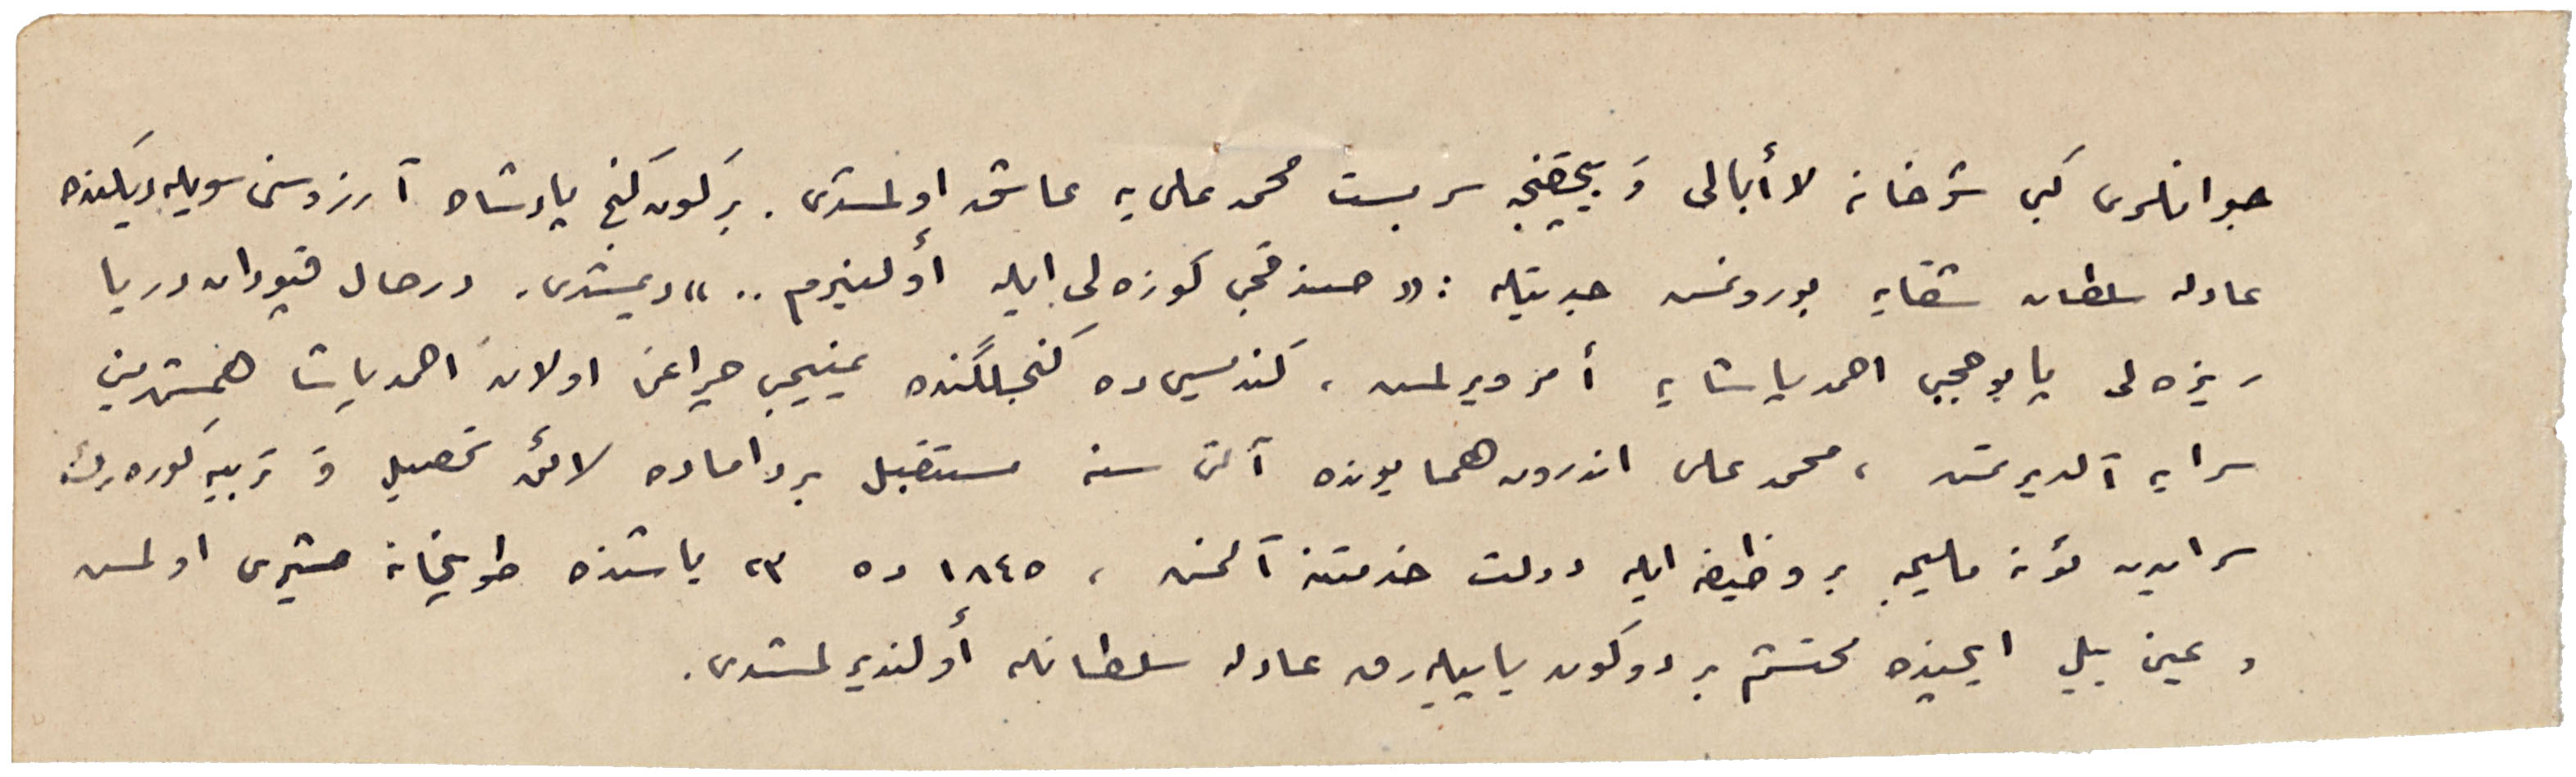 جوانلرى كبى شوخانه لاأبالى وَ بيچقينجه سربست محمد على يه عاشق اولمشدى. بر كون كنج پادشاه آرزوسنى سويله ديكنده
عادله سلطان شقايه بورونمش جديتله : «صندقجى كوزه لى ايله أولنيرم ..» ديمشدى. درحال قپودان دريا
ريزه لى پاپوججى احمد پاشايه أمر ويرلمش ، كنديسى ده كنجلگنده يمنيجى چيراغى اولان احمد پاشا همشهريسنى
سرايه آلديرتمش ، محمد على اندرون همايونده آلتى سنه مستقبل بر داماده لائق تحصيل وَ تربيه كوره رك
سرايدن بر وظيفه ايله دولت خدمتنه آلنمش ، ١٨٤٥ ده ٢٣ ياشنده طوپخانه مشيرى اولمش
و عين ييل ايچنده محتشم بر دوكون ياپيله رق عادله سلطانله أولنديرلمشدى.